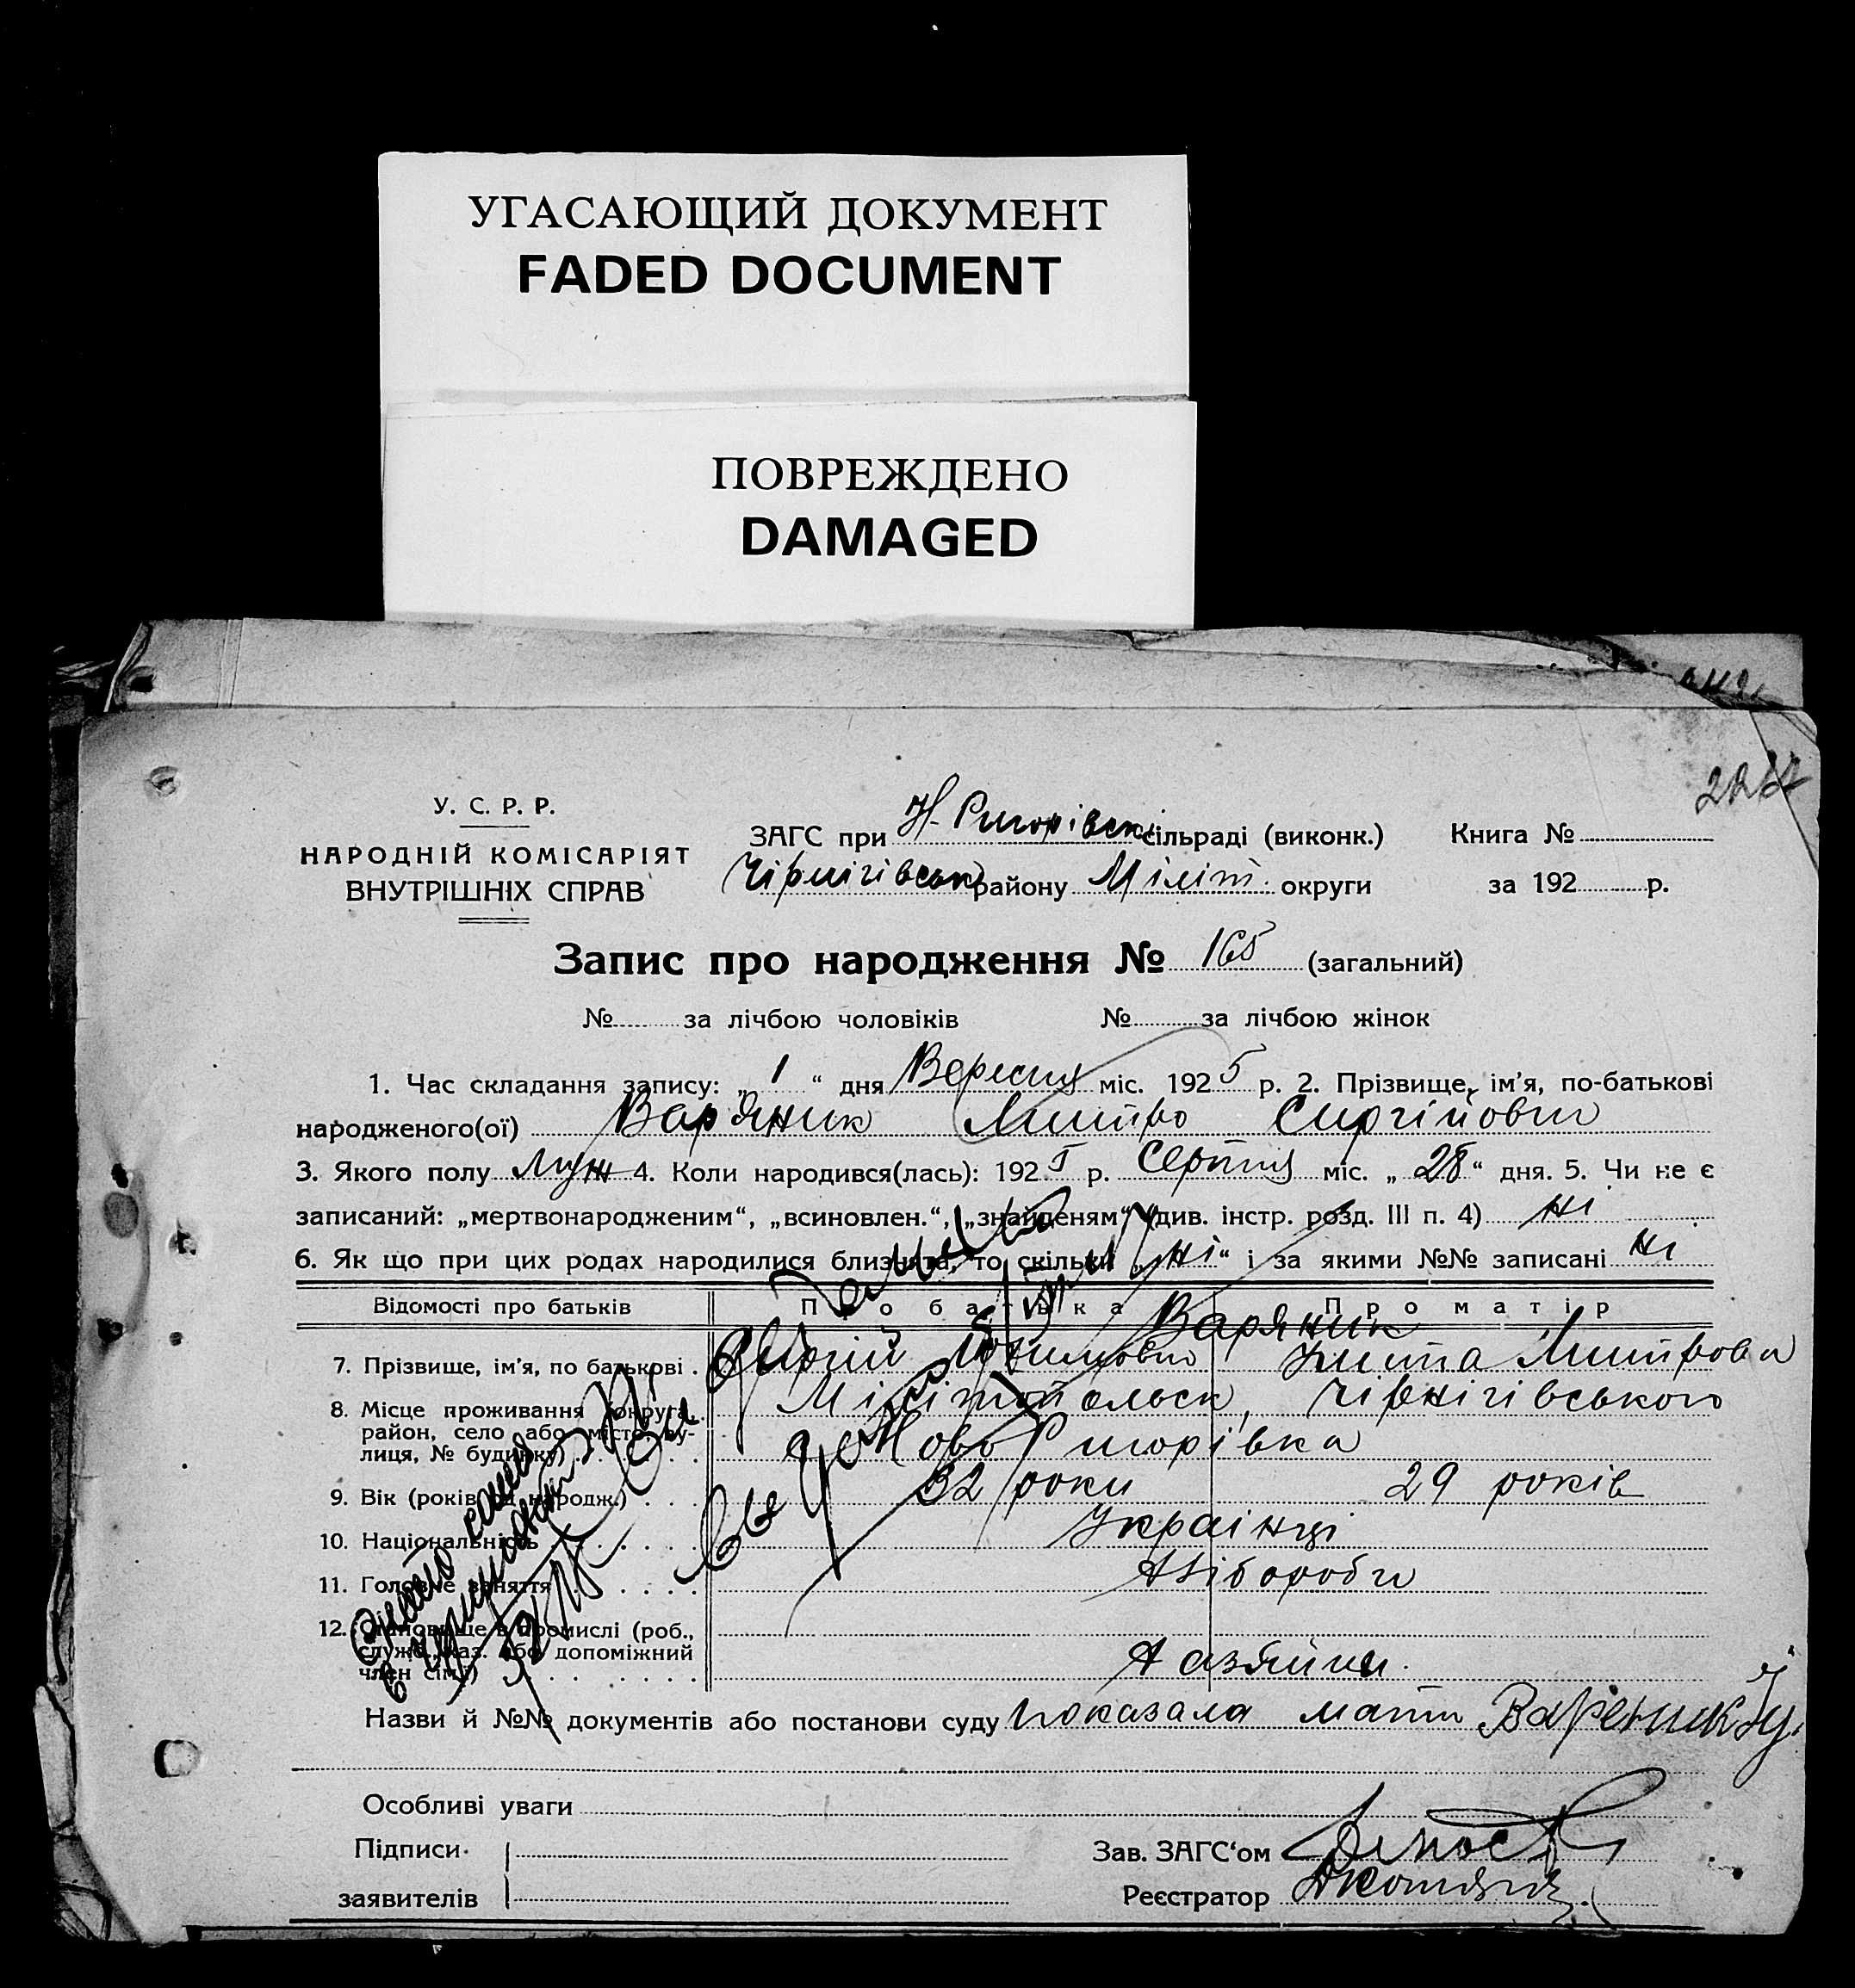 УГАСАЮЩИЙ ДОКУМЕНТ
FADED DOCUMENT
ПОВРЕЖДЕНО
DAMAGED
У. С. Р. Р.
НАРОДНІЙ КОМІСАРІЯТ
ВНУТРІШНІХ СПРАВ
ЗАГС при Н-Ригорівск сільраді (виконк.) Книга №
Чірнігівськ району Міліт. округи за 192 р.
Запис про народження № 165 (загальний)
№ за лічбою чоловіків № за лічбою жінок
1. Час складання запису: „ 1 “ дня Вересня міс. 192 5 р. 2. Прізвище, ім'я, по-батькові
народженого(ої) Варяник Митро Сиргійович
3. Якого полу Муж 4. Коли народився(лась): 192 5 р. Серпня міс. „ 28 “ дня. 5. Чи не є
записаний: „мертвонародженим“, „всиновлен.“, „знайденям“ (див. інстр. розд. III п. 4) ні
6. Як що при цих родах народилися близнята, то скільки „ ні “ і за якими №№ записані ні
Відомості про батьків Про батька Про матір
Варяник
7. Прізвище, ім'я, по батькові Сиргій Митрова
8. Місце проживання (округа, Мілітопольск, Чірнігівського
район, село або місто, ву-
лиця, № будинку) Ново Ригорівка
9. Вік (років од народж.) 32 роки 29 років
10. Національність Українці
11. Головне заняття Хлібороби
12. Становище в промислі (роб.,
служб., хаз. або допоміжний
член сім'ї) Хазяйни.
Назви й №№ документів або постанови суду показала мати Вареник У.
Особливі уваги
Підписи
заявителів
Зав. ЗАГС'ом
Реєстратор